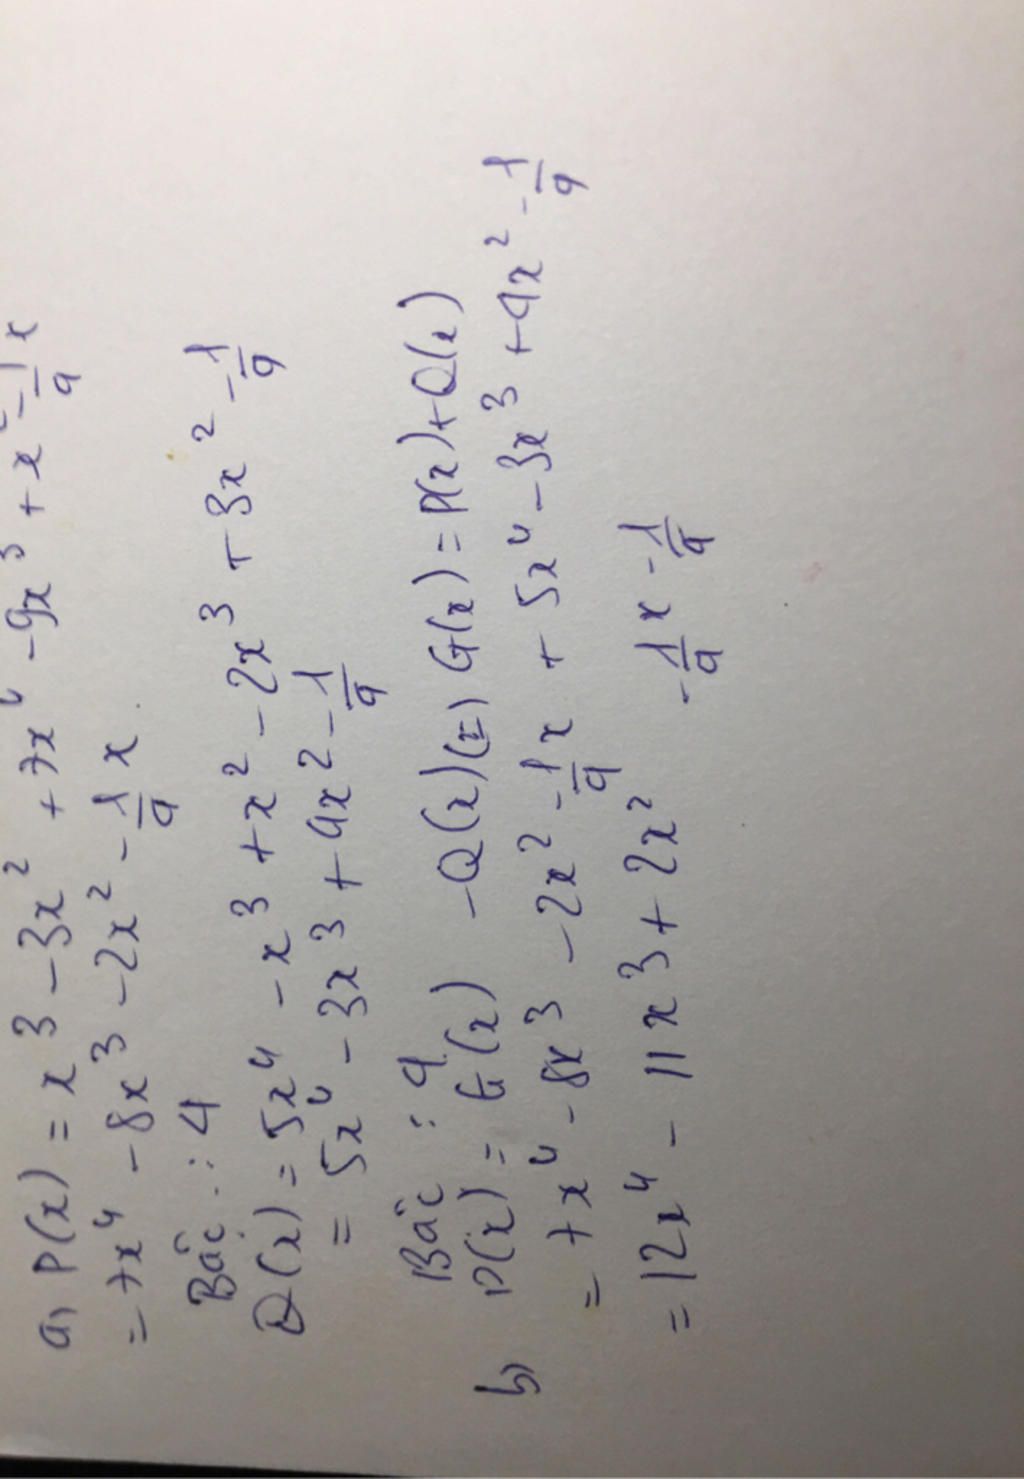 a, P(x) = x³ - 3x² + 7x⁴ - 9x³ + x² - 1/4 x
= 7x⁴ - 8x³ - 2x² - 1/4 x
Bậc : 4
Q(x) = 5x⁴ - x³ + x² - 2x³ + 3x² - 1/4
= 5x⁴ - 3x³ + 4x² - 1/4
Bậc : 4
b, P(x) = G(x) - Q(x) (=) G(x) = P(x) + Q(x)
= 7x⁴ - 8x³ - 2x² - 1/4 x + 5x⁴ - 3x³ + 4x² - 1/4
= 12x⁴ - 11x³ + 2x² - 1/4 x - 1/4